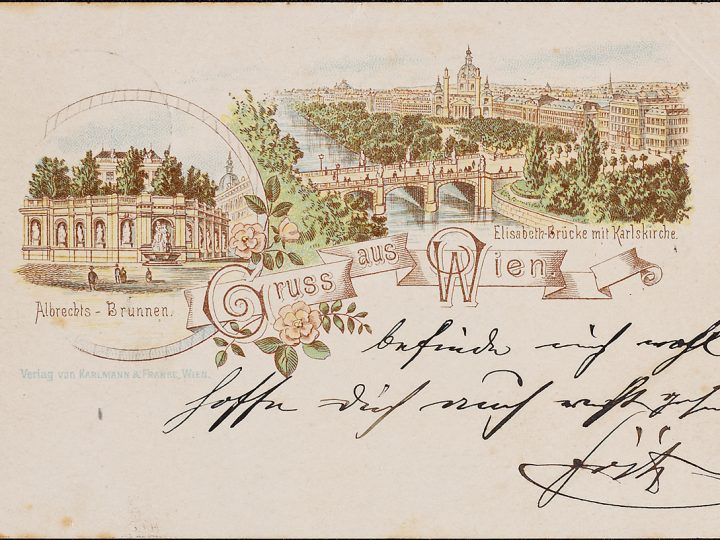 Elisabeth-Brücke mit Karlskirche.
Albrechts - Brunnen.
Gruss aus Wien
Verlag von KARLMANN & FRANKE, WIEN.
befinde mich wohl
hoffe dich auch